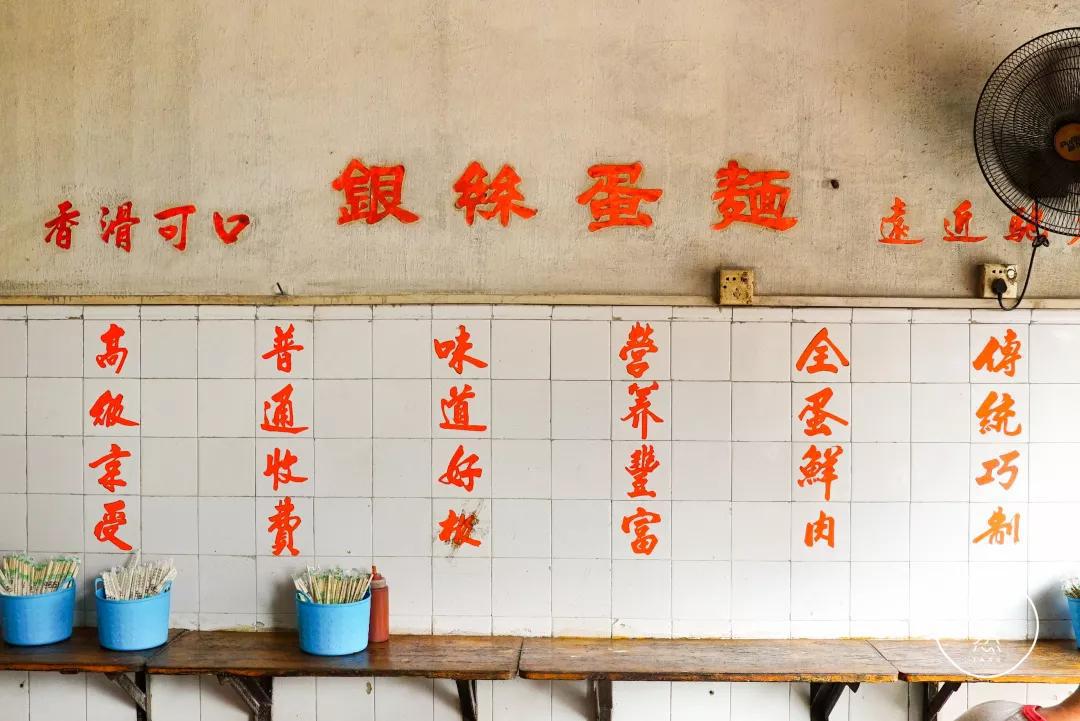 香滑可口
銀絲蛋麵
遠近馳
傳統巧制
全蛋鮮肉
營养豐富
味道好极
普通收費
高級享受